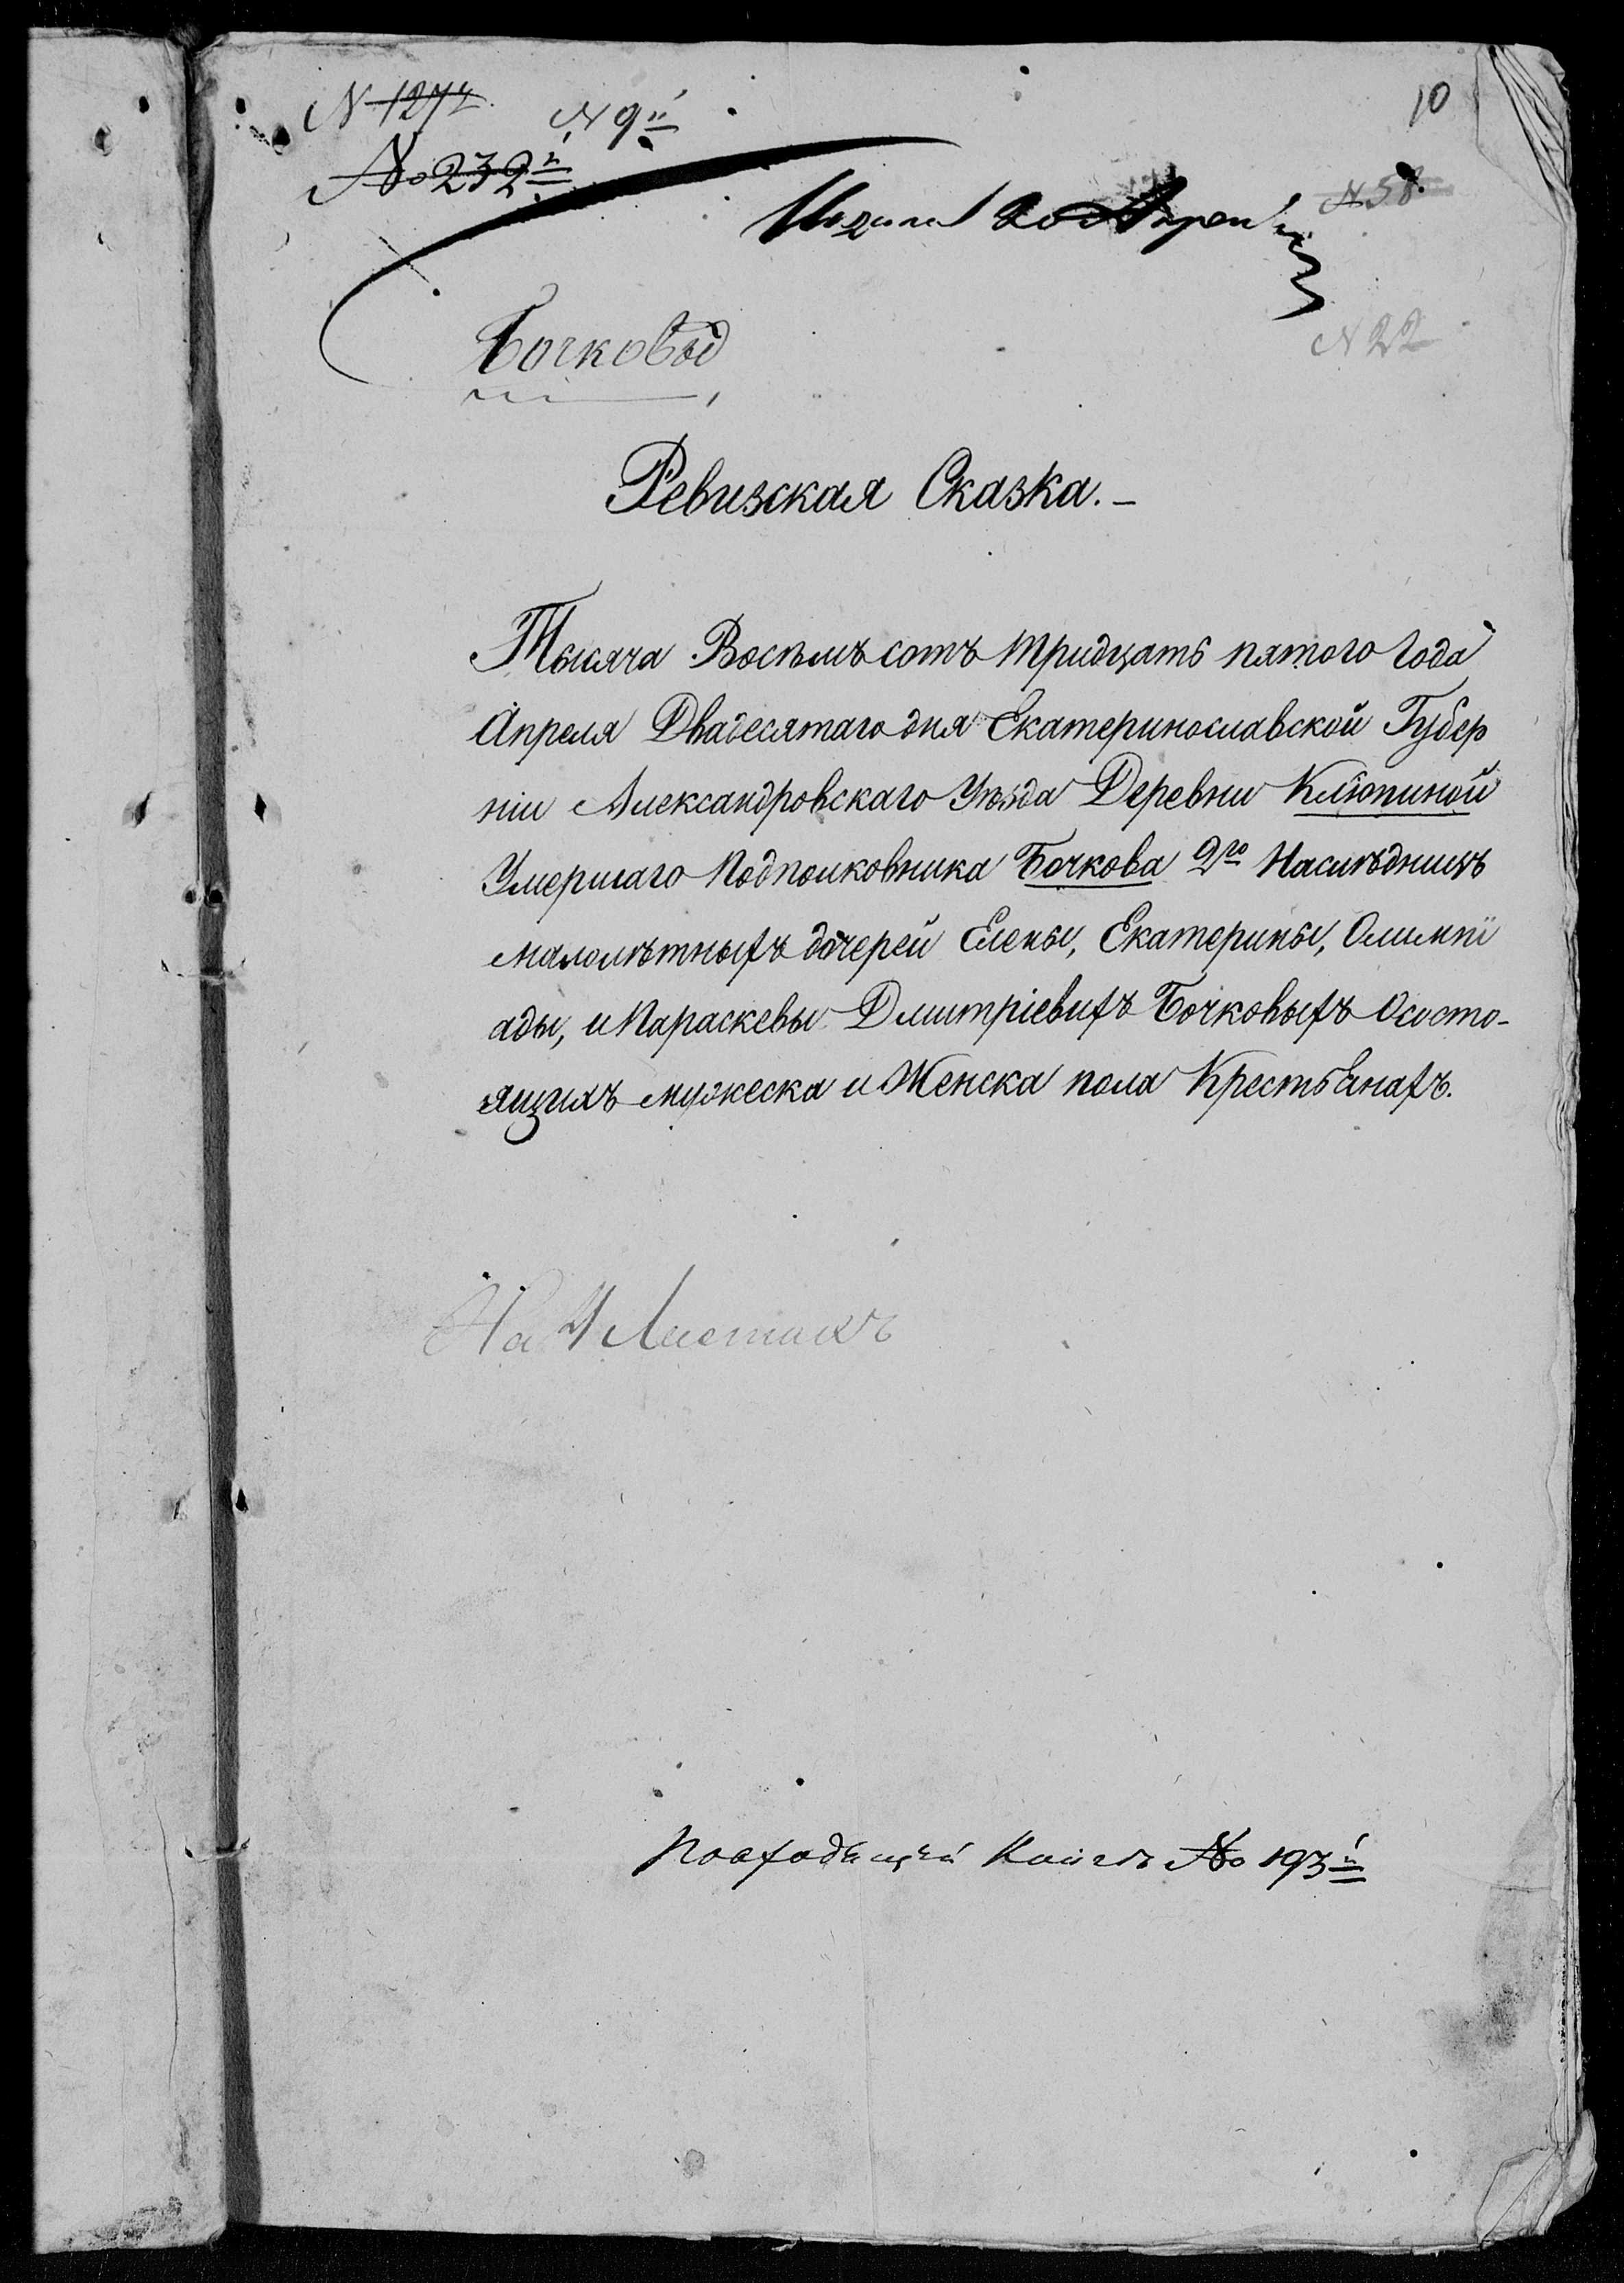 N 127
N 9й
10
№ 232й
N 58
N 22
Бочковой
Ревизская Сказка.
Тысяча Восѣмъ сотъ тридцать пятого Года
Апреля Двадесятаго дня Екатеринославской Губер
ніи Александровскаго Уѣзда Деревни Клюпиной
Умершаго Подполковника Бочкова 2го Наслѣдницъ
малолѣтныхъ дочерей Елены, Екатерины, Олимпі
ады, и Параскевы Дмитріевихъ Бочковыхъ Ососто-
ящихъ мужеска и Женска пола Крестьянахъ.
На 4 Листахъ
Повходящей Книгѣ № 193й